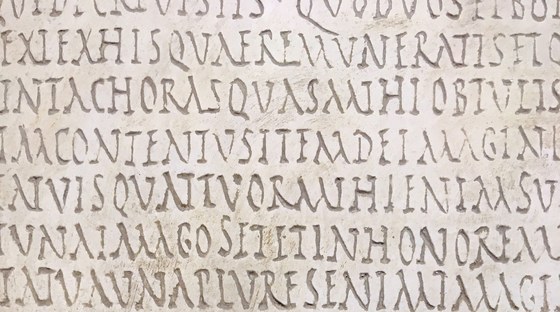 EXIEXHISQVAEREMVNERATISFIS
INTACHORASQVASMIHIOBTVLIS
IAMCONTENTVSITEMDEIMAGINI
TATVISQVATTVORMIHIENIMSV
VNAIMAGOSETETINHONOREM
TATVMVNAPLVRESENIMIMAGI